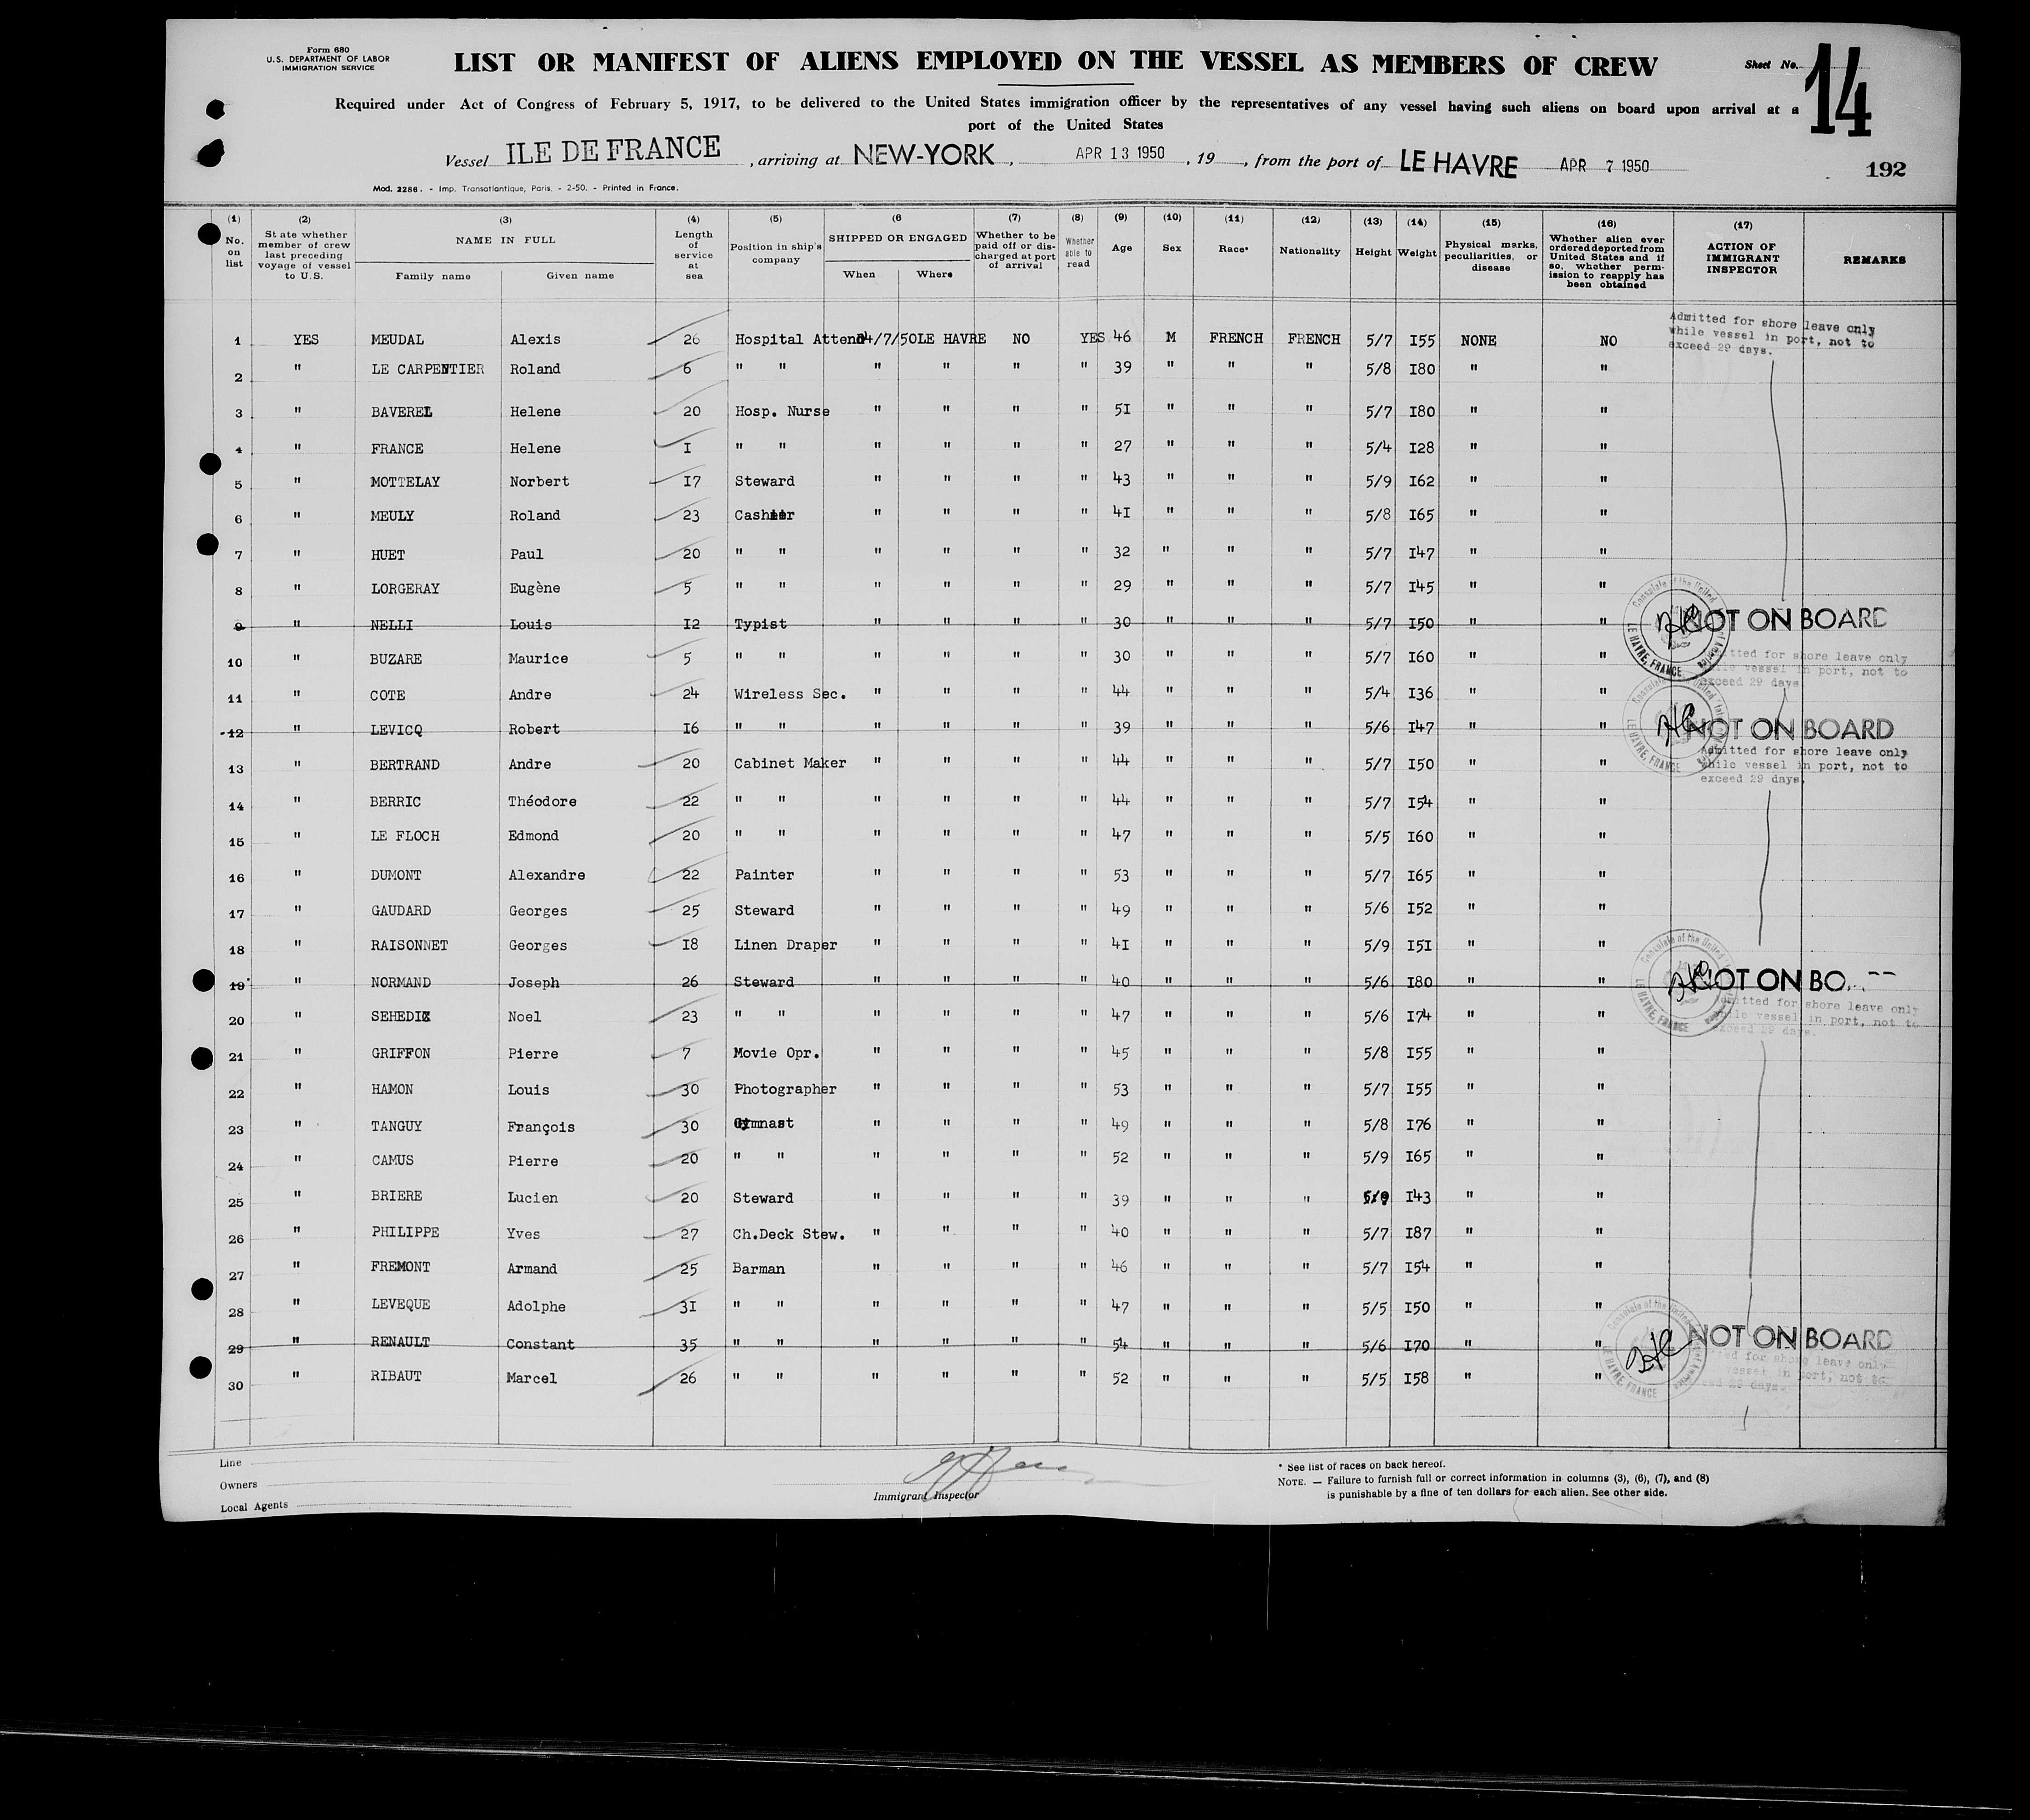 Form 680
U.S. DEPARTMENT OF LABOR
IMMIGRATION SERVICE
LIST OR MANIFEST OF ALIENS EMPLOYED ON THE VESSEL AS MEMBERS OF CREW
Sheet No. 14
Required under Act of Congress of February 5, 1917, to be delivered to the United States immigration officer by the representatives of any vessel having such aliens on board upon arrival at a
port of the United States
Vessel ILE DE FRANCE, arriving at NEW-YORK, APR 13 1950, 19 , from the port of LE HAVRE APR 7 1950
192
Mod. 2286. - Imp. Transatlantique, Paris. - 2-50. - Printed in France.
(1) No. on list
(2) State whether member of crew last preceding voyage of vessel to U.S.
(3) NAME IN FULL Family name Given name
(4) Length of service at sea
(5) Position in ship's company
(6 SHIPPED OR ENGAGED When Where
(7) Whether to be paid off or discharged at port of arrival
(8) Whether able to read
(9) Age
(10) Sex
(11) Race*
(12) Nationality
(13) Height
(14) Weight
(15) Physical marks, peculiarities, or disease
(16) Whether alien ever ordered deported from United States and if so, whether permission to reapply has been obtained
(17) ACTION OF IMMIGRANT INSPECTOR
REMARKS
1 YES MEUDAL Alexis 26 Hospital Attend 4/7/50 LE HAVRE NO YES 46 M FRENCH FRENCH 5/7 I55 NONE NO Admitted for shore leave only while vessel in port, not to exceed 29 days.
2 " LE CARPENTIER Roland 6 " " " " " " 39 " " " 5/8 I80 " "
3 " BAVEREL Helene 20 Hosp. Nurse " " " " 51 " " " 5/7 I80 " "
4 " FRANCE Helene I " " " " " " 27 " " " 5/4 I28 " "
5 " MOTTELAY Norbert I7 Steward " " " " 43 " " " 5/9 I62 " "
6 " MEULY Roland 23 Cashier " " " " 4I " " " 5/8 I65 " "
7 " HUET Paul 20 " " " " " " 32 " " " 5/7 I47 " "
8 " LORGERAY Eugène 5 " " " " " " 29 " " " 5/7 I45 " "
9 " NELLI Louis I2 Typist " " " " 30 " " " 5/7 I50 " " NOT ON BOARD
10 " BUZARE Maurice 5 " " " " " " 30 " " " 5/7 I60 " " Admitted for shore leave only while vessel in port, not to exceed 29 days
11 " COTE Andre 24 Wireless Sec. " " " " 44 " " " 5/4 I36 " "
12 " LEVICQ Robert I6 " " " " " " 39 " " " 5/6 I47 " " NOT ON BOARD
13 " BERTRAND Andre 20 Cabinet Maker " " " " 44 " " " 5/7 I50 " " Admitted for shore leave only while vessel in port, not to exceed 29 days.
14 " BERRIC Théodore 22 " " " " " " 44 " " " 5/7 I54 " "
15 " LE FLOCH Edmond 20 " " " " " " 47 " " " 5/5 I60 " "
16 " DUMONT Alexandre 22 Painter " " " " 53 " " " 5/7 I65 " "
17 " GAUDARD Georges 25 Steward " " " " 49 " " " 5/6 I52 " "
18 " RAISONNET Georges I8 Linen Draper " " " " 4I " " " 5/9 I5I " "
19 " NORMAND Joseph 26 Steward " " " " 40 " " " 5/6 I80 " " NOT ON BO
20 " Noel 23 " " " " " " 47 " " " 5/6 I74 " " Admitted for shore leave only while vessel in port, not to exceed 29 days.
21 " GRIFFON Pierre 7 Movie Opr. " " " " 45 " " " 5/8 I55 " "
22 " HAMON Louis 30 Photographer " " " " 53 " " " 5/7 I55 " "
23 " TANGUY François 30 Gymnast " " " " 49 " " " 5/8 I76 " "
24 " CAMUS Pierre 20 " " " " " " 52 " " " 5/9 I65 " "
25 " BRIERE Lucien 20 Steward " " " " 39 " " " 5/9 I43 " "
26 " PHILIPPE Yves 27 Ch.Deck Stew. " " " " 40 " " " 5/7 I87 " "
27 " FREMONT Armand 25 Barman " " " " 46 " " " 5/7 I54 " "
28 " LEVEQUE Adolphe 3I " " " " " " 47 " " " 5/5 I50 " "
29 " RENAULT Constant 35 " " " " " " 54 " " " 5/6 I70 " " NOT ON BOARD
30 " RIBAUT Marcel 26 " " " " " " 52 " " " 5/5 I58 " " for shore leave only vessel in port, not to 29 days
Line
Owners
Local Agents
Immigrant Inspector
* See list of races on back hereof.
NOTE. — Failure to furnish full or correct information in columns (3), (6), (7), and (8)
is punishable by a fine of ten dollars for each alien. See other side.